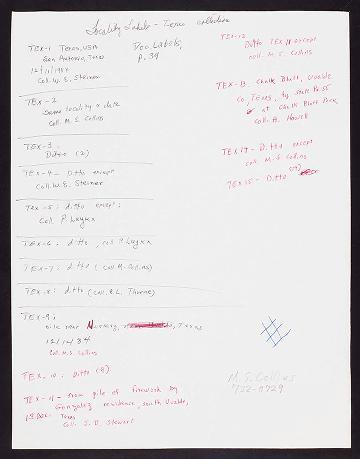 Locality Labels - Texas collection
TEX-1 Texas, USA
San Antonio, Texas
12/11/1984
Coll. W. E. Steiner
Dec. Labels,
p. 39
TEX-2
Same locality & date
Coll. M. S. Collins
TEX-3
Ditto (2)
TEX-4 - Ditto except
Coll. W. E. Steiner
TEX-5: ditto except:
Coll. P.
TEX-6: ditto, P.
TEX-7: ditto (Coll M. Collins)
TEX-8: ditto (Coll. B.L. Thorne)
TEX-9:
pile near Nursery, Texas
12/12/84
Coll. M.S. Collins
TEX-10: Ditto (8)
TEX-11 - from pile of firewood by
Gonzalez residence, south Uvalde,
Texas
Coll. J. D. Stewart
TEX-12
Ditto TEX 11 except
coll. M. S. Collins
TEX-13 Chalk Bluff, Uvalde
Co., Texas, by state Rt 55
at Chalk Bluff Park,
coll. H. Howell
TEX 14 - Ditto except
coll. M. S. Collins
TEX 15 - Ditto
M. S. Collins
722-0729